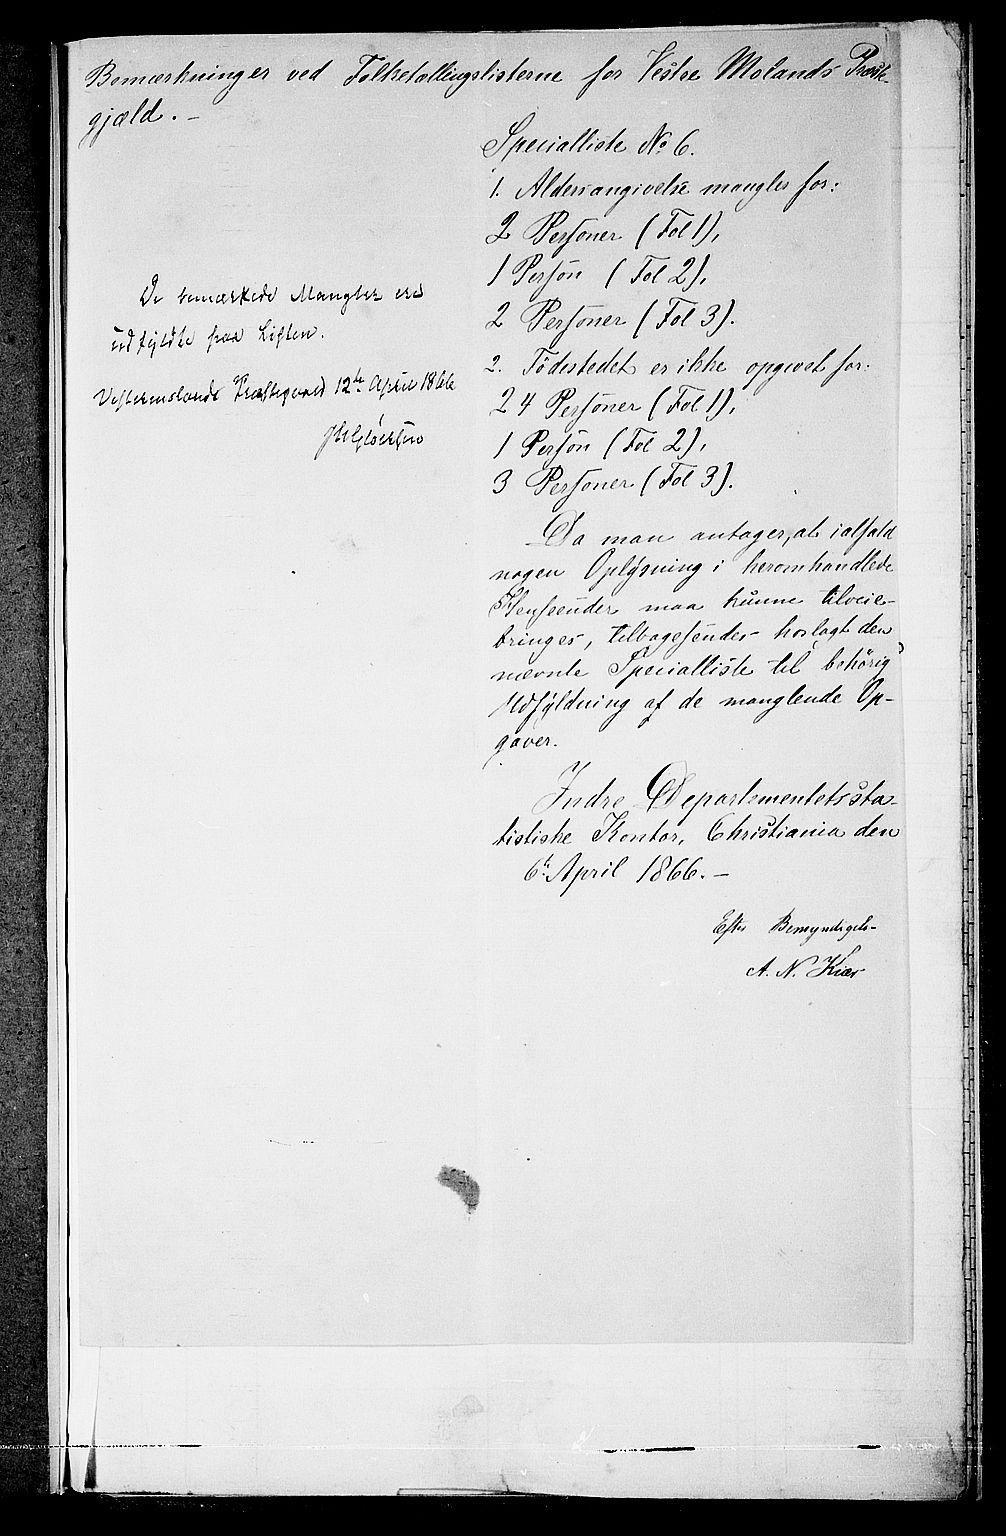 Bemærkninger ved Folketællingslisterne for Vestre Molands Præste-
gjæld. –
Specialliste No 6.
1. Aldersangivelse mangler for:
2 Personer (Fol 1),
1 Person (Fol 2),
2 Personer (Fol 3).
2. Födestedet er ikke opgivet for:
24 Personer (Fol 1),
1 Person (Fol 2),
3 Personer (Fol 3).
Da man antager, at ialfald
nogen Oplysning i heromhandlede
Henseender maa kunne tilveie-
bringes, tilbagesendes hoslagt den
nævnte Specialliste til behörig
Udfyldning af de manglende Op-
gaver.
Indre Departementets sta-
tistiske Kontor, Christiania den
6te April 1866. –
Efter Bemyndigelse
A. N. Kiær
De bemærkede Mangler ere
udfyldte paa Listen.
Vestremolands Præstegaard 12te April 1866